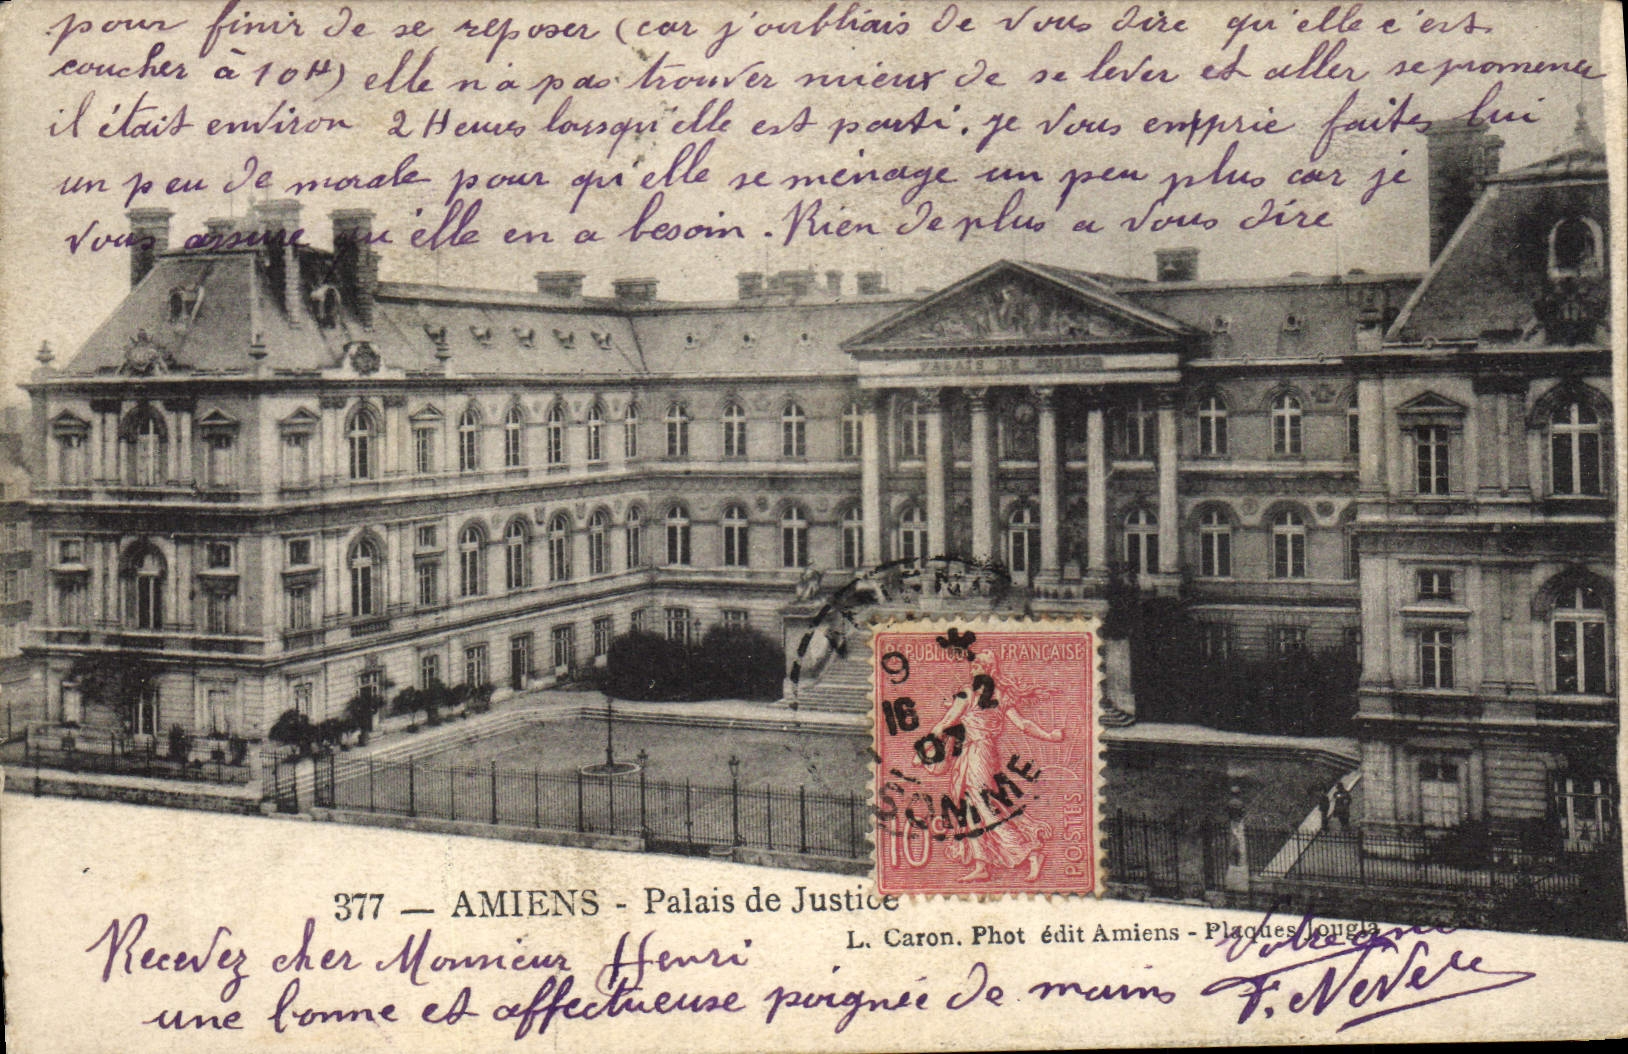 pour finir de se reposer (car j'oubliais de vous dire qu'elle c'est
coucher à 10H) elle n'a pas trouver mieux de se lever et aller se promener
il était environ 2 Heures lorsqu'elle est parti. je vous emprie faites lui
un peu de morale pour qu'elle se ménage un peu plus car je
vous assure qu'elle en a besoin. Rien de plus a vous dire
PALAIS DE JUSTICE
AMIENS
REPUBLIQUE FRANÇAISE
9 *
16 -2
07
SOMME
10c
POSTES
377 — AMIENS - Palais de Justice
L. Caron. Phot édit Amiens - Plaques Jougla
Recevez cher Monsieur Henri
une bonne et affectueuse poignée de mains
Votre ami